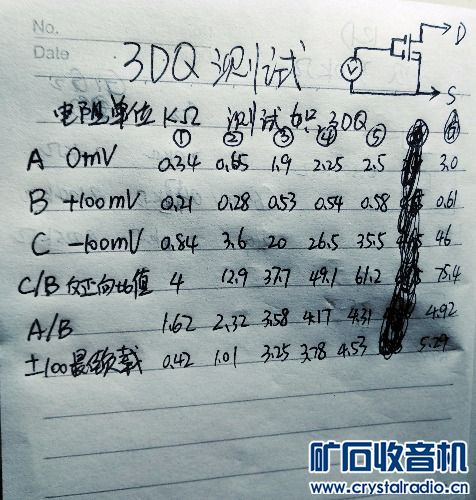 No.
Date
3DQ 测试
D
V
S
电阻单位 KΩ 测试如 3DQ
① ② ③ ④ ⑤ ⑥
A 0mV 0.34 0.65 1.9 2.25 2.5 3.0
B +100mV 0.21 0.28 0.53 0.54 0.58 0.61
C -100mV 0.84 3.6 20 26.5 35.5 46
C/B 反正向比值 4 12.9 37.7 49.1 61.2 75.4
A/B 1.62 2.32 3.58 4.17 4.31 4.92
±100最领载 0.42 1.01 3.25 3.78 4.53 5.29
矿石收音机
www.crystalradio.cn